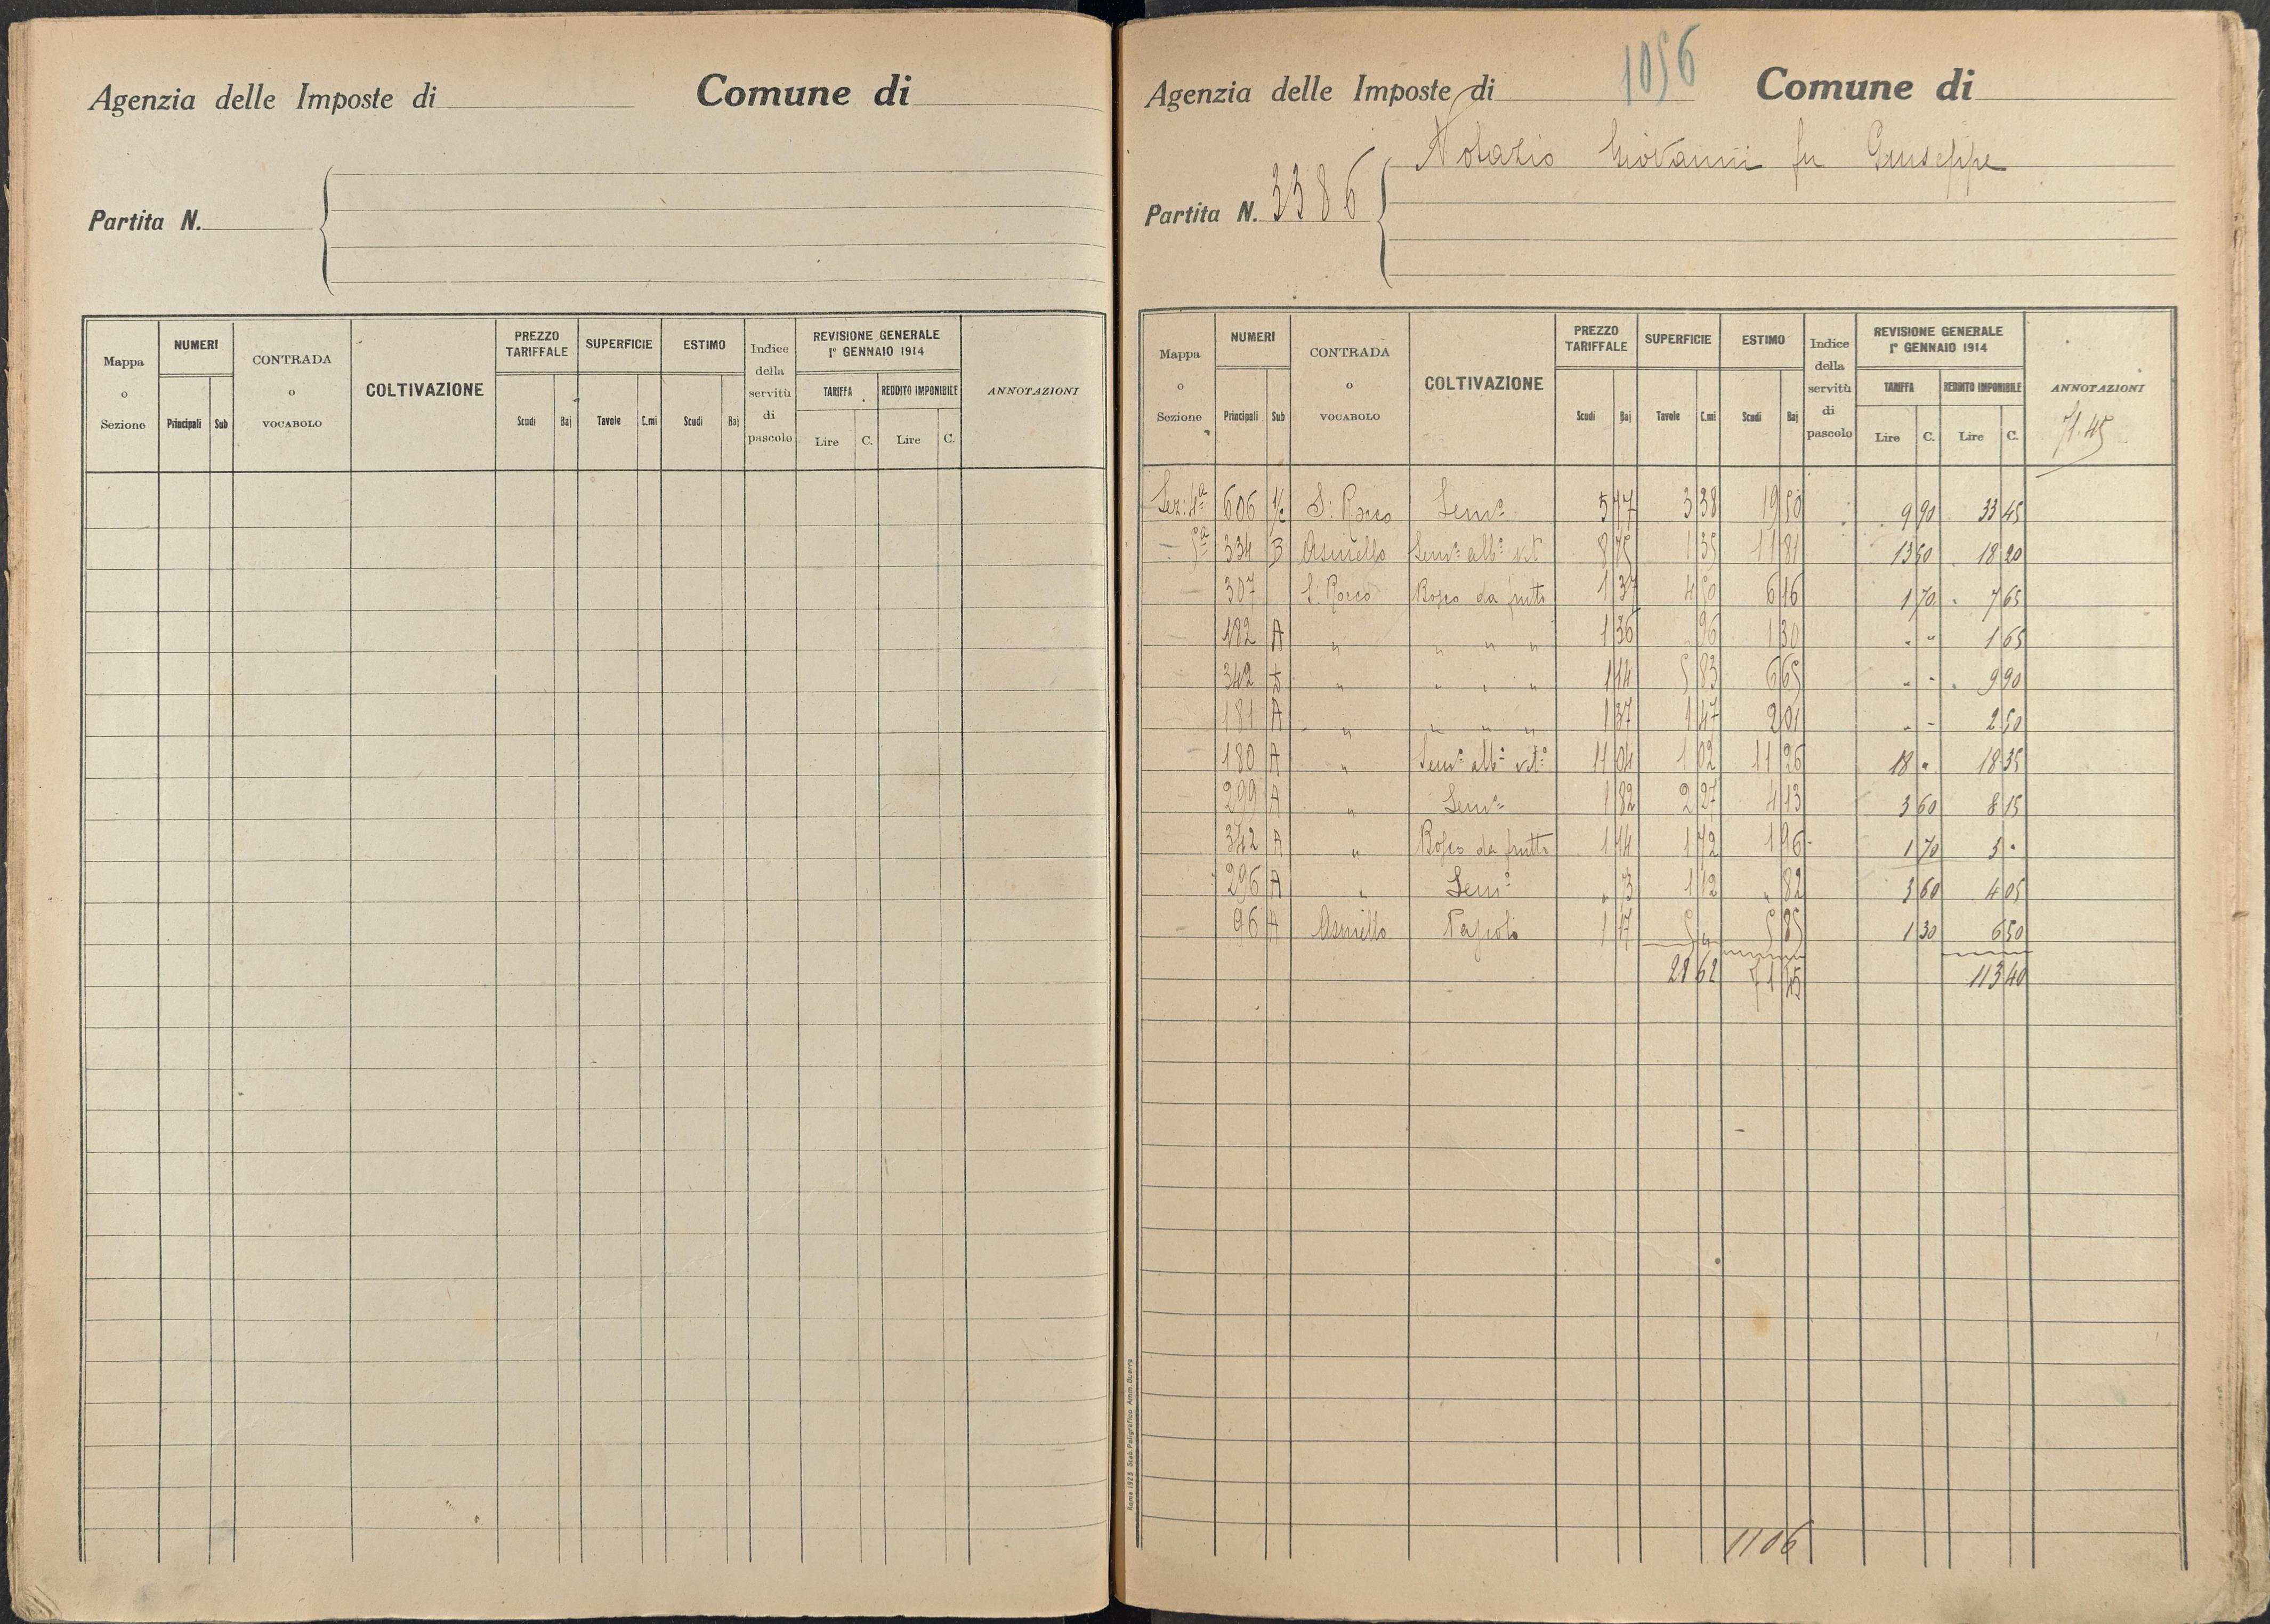 Agenzia delle Imposte di Comune di
Partita N.
Mappa o Sezione NUMERI CONTRADA o VOCABOLO COLTIVAZIONE PREZZO TARIFFALE SUPERFICIE ESTIMO Indice della servitù di pascolo REVISIONE GENERALE 1° GENNAIO 1914 ANNOTAZIONI
TARIFFA REDDITO IMPONIBILE
Principali Sub Scudi Baj Tavole C.mi Scudi Baj Lire C. Lire C.
1056
Agenzia delle Imposte di Comune di
Notazio Giovanni fu Giuseppe
Partita N. 3386
Mappa o Sezione NUMERI CONTRADA o VOCABOLO COLTIVAZIONE PREZZO TARIFFALE SUPERFICIE ESTIMO Indice della servitù di pascolo REVISIONE GENERALE 1° GENNAIO 1914 ANNOTAZIONI
TARIFFA REDDITO IMPONIBILE
Principali Sub Scudi Baj Tavole C.mi Scudi Baj Lire C. Lire C.
71.45
Sez: 4ª 606 S: Rocco Semº 5 77 3 38 19 50 9 90 33 45
— 5ª 334 B Asinello Semº albº vitº 8 75 1 35 11 81 13 50 18 20
— 307 S: Rocco Bosco da frutto 1 37 4 50 6 16 1 70 7 65
— 182 A " " " " 1 36 96 1 30 " " 1 65
— 342 " " " " 1 14 5 83 6 65 " " 9 90
— 181 A " " " " 1 37 1 47 2 01 " " 2 50
— 180 A " Semº albº vitº 11 04 1 02 11 26 18 " 18 35
— 299 A " Semº 1 82 2 27 4 13 3 60 8 15
— 342 A " Bosco da frutto 1 14 1 72 1 96 1 70 3 "
296 A " Semº " 73 1 12 " 82 3 60 4 05
— 96 A Asinello Pascolo 1 17 5 " 5 85 1 30 6 50
28 62 71 45 113 40
1106
Roma 1923 Stab. Poligrafico Amm. Guerra